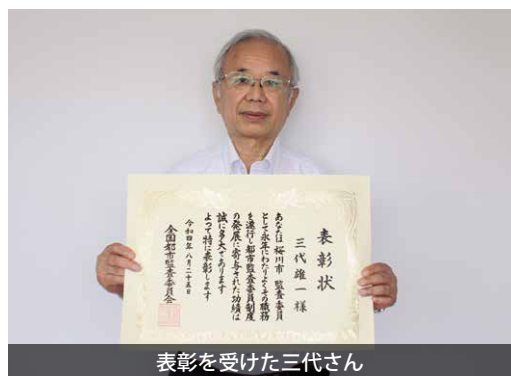 表彰状
三代雄一様
あなたは桜川市監査委員
として永年にわたりよくその職務
を遂行し都市監査委員制度
の発展に寄与された功績は
誠に多大であります
よって特に表彰します
令和四年八月二十五日
全国都市監査委員会
表彰を受けた三代さん